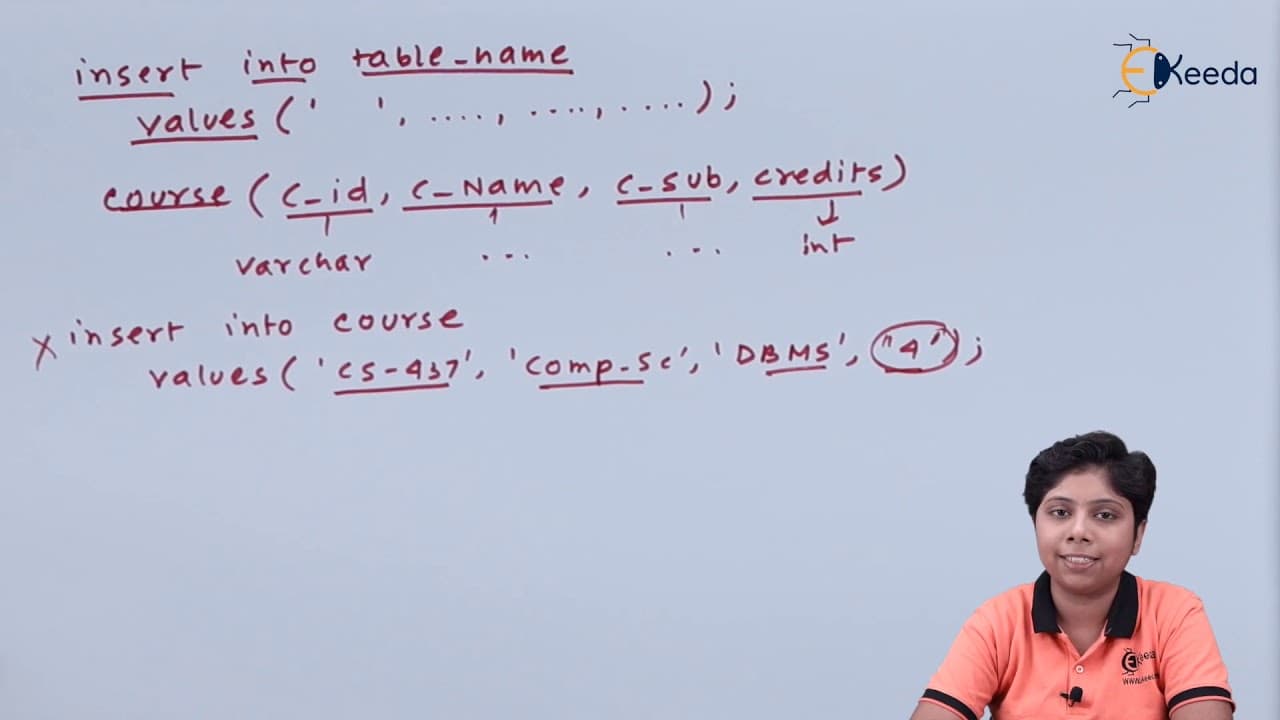 insert into table_name
values (' ', ...., ...., ....);
course (c_id, c_Name, c_sub, credits)
varchar ... ... int
X insert into course
values ('CS-437', 'Comp_Sc', 'DBMS', "4');
EKeeda
EKeeda